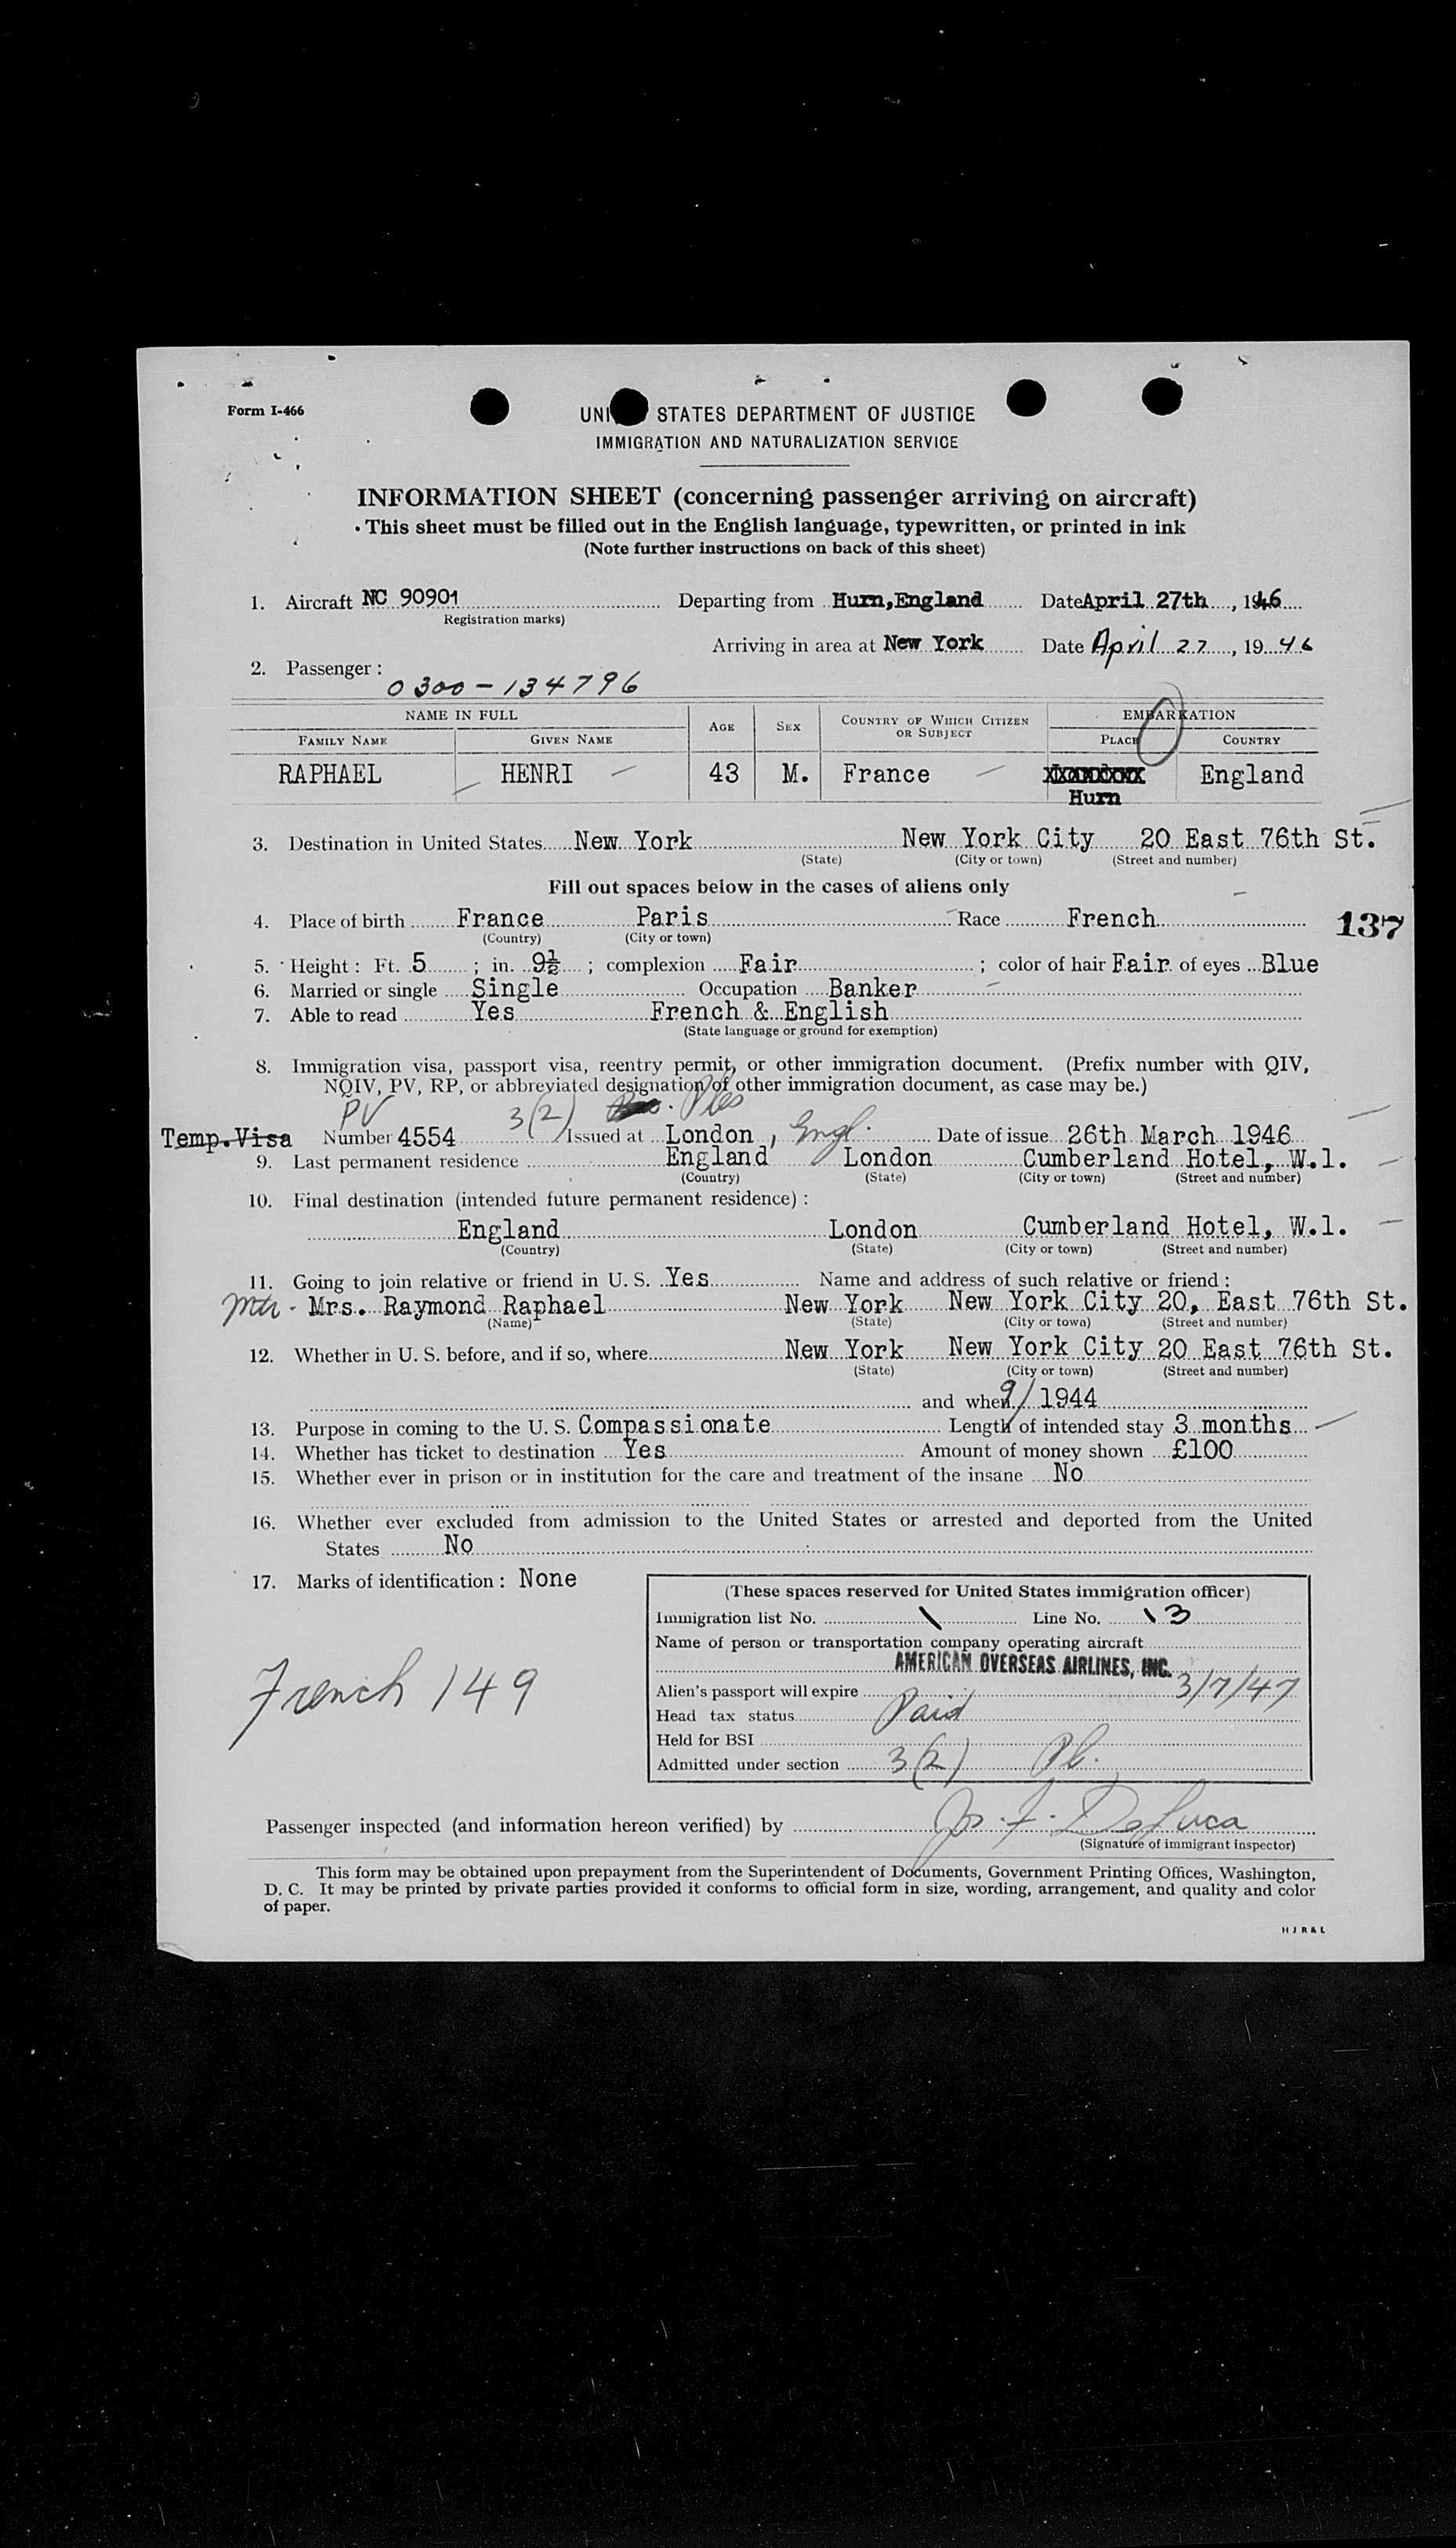 Form I-466
UNI STATES DEPARTMENT OF JUSTICE
IMMIGRATION AND NATURALIZATION SERVICE
INFORMATION SHEET (concerning passenger arriving on aircraft)
This sheet must be filled out in the English language, typewritten, or printed in ink
(Note further instructions on back of this sheet)
1. Aircraft NC 90901 Departing from Hurn,England Date April 27th, 1946
Registration marks)
Arriving in area at New York Date April 27, 1946
2. Passenger:
0300-134796
NAME IN FULL AGE SEX COUNTRY OF WHICH CITIZEN OR SUBJECT EMBARKATION
FAMILY NAME GIVEN NAME PLACE COUNTRY
RAPHAEL HENRI 43 M. France England
Hurn
3. Destination in United States New York New York City 20 East 76th St.
(State) (City or town) (Street and number)
Fill out spaces below in the cases of aliens only
4. Place of birth France Paris Race French 137
(Country) (City or town)
5. Height: Ft. 5; in. 9½; complexion Fair; color of hair Fair of eyes Blue
6. Married or single Single Occupation Banker
7. Able to read Yes French & English
(State language or ground for exemption)
8. Immigration visa, passport visa, reentry permit, or other immigration document. (Prefix number with QIV,
NQIV, PV, RP, or abbreviated designation of other immigration document, as case may be.)
PV 3(2)
Temp.Visa Number 4554 Issued at London, Engl. Date of issue 26th March 1946
9. Last permanent residence England London Cumberland Hotel, W.1.
(Country) (State) (City or town) (Street and number)
10. Final destination (intended future permanent residence):
England London Cumberland Hotel, W.1.
(Country) (State) (City or town) (Street and number)
11. Going to join relative or friend in U. S. Yes Name and address of such relative or friend:
Mtr - Mrs. Raymond Raphael New York New York City 20, East 76th St.
(Name) (State) (City or town) (Street and number)
12. Whether in U. S. before, and if so, where New York New York City 20 East 76th St.
(State) (City or town) (Street and number)
and when 9/1944
13. Purpose in coming to the U. S. Compassionate Length of intended stay 3 months
14. Whether has ticket to destination Yes Amount of money shown £100
15. Whether ever in prison or in institution for the care and treatment of the insane No
16. Whether ever excluded from admission to the United States or arrested and deported from the United
States No
17. Marks of identification: None
(These spaces reserved for United States immigration officer)
Immigration list No. 1 Line No. 13
Name of person or transportation company operating aircraft
AMERICAN OVERSEAS AIRLINES, INC.
Alien's passport will expire 3/7/47
Head tax status Paid
Held for BSI
Admitted under section 3(2) Pl.
French 149
Passenger inspected (and information hereon verified) by Jos. F. DeLuca
(Signature of immigrant inspector)
This form may be obtained upon prepayment from the Superintendent of Documents, Government Printing Offices, Washington,
D. C. It may be printed by private parties provided it conforms to official form in size, wording, arrangement, and quality and color
of paper.
H J R & L